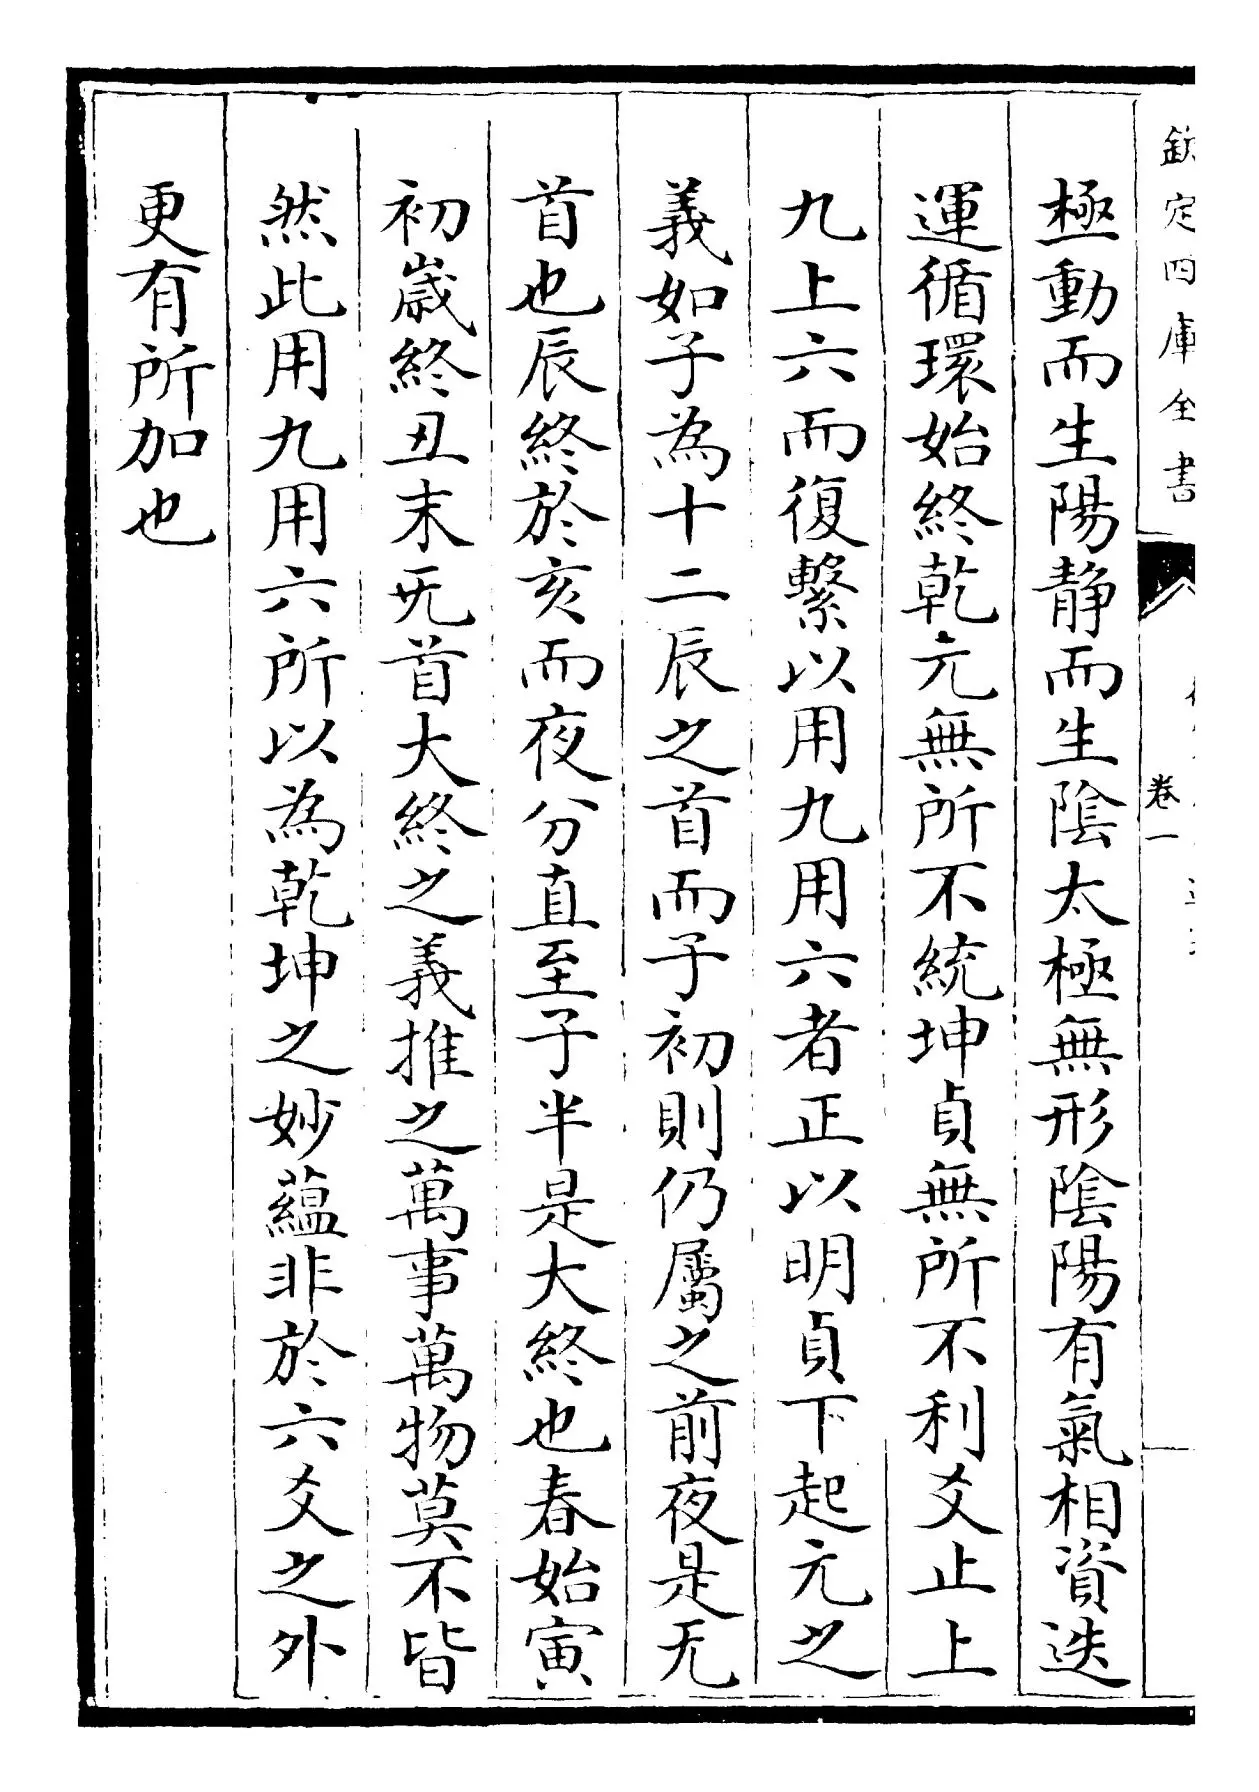 欽定四庫全書
卷一
極動而生陽静而生陰太極無形陰陽有氣相資迭
運循環始終乾元無所不統坤貞無所不利爻止上
九上六而復繫以用九用六者正以明貞下起元之
義如子為十二辰之首而子初則仍屬之前夜是无
首也辰終於亥而夜分直至子半是大終也春始寅
初歳終丑末旡首大終之義推之萬事萬物莫不皆
然此用九用六所以為乾坤之妙蘊非於六爻之外
更有所加也